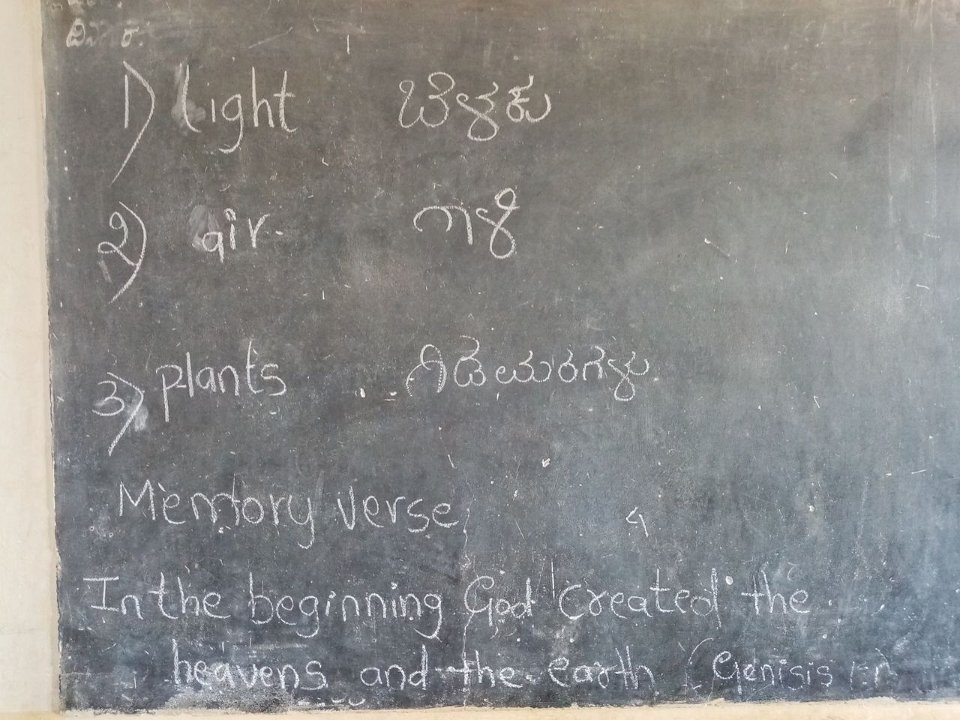 1) light ಬೆಳಕು
2) air. ಗಾಳಿ
3) plants ಗಿಡಮರಗಳು
Memory verse
In the beginning God created the
heavens and the earth (Genisis